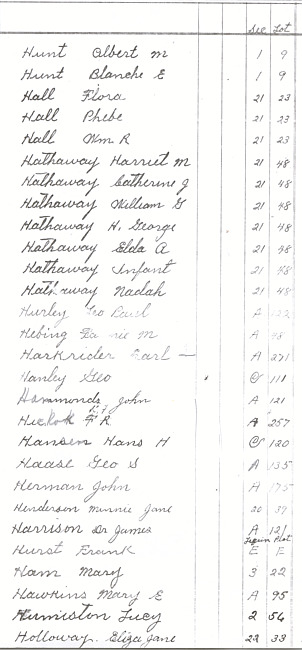 Sec Lot
Hunt Albert M 1 9
Hunt Blanche E 1 9
Hall Flora 21 23
Hall Phebe 21 23
Hall Wm R 21 23
Hathaway Harriet M 21 48
Hathaway Catherine J 21 48
Hathaway William G 21 48
Hathaway H. George 21 48
Hathaway Elda A 21 48
Hathaway Infant 21 48
Hathaway Nadah 21 48
Hurley Geo A
Hebing M A
Harkrider Carl A 271
Hanley Geo C 111
Hammonds, John A 121
Hickok F R A 257
Hansen Hans H C 120
Haase Geo S A 135
Herman John A 175
Henderson Minnie Jane 20 39
Harrison Dr James A 121
Hurst Frank E F
Ham Mary 3 22
Hawkins Mary E A 95
Humiston Lucy 2 54
Holloway. Eliza Jane 22 33